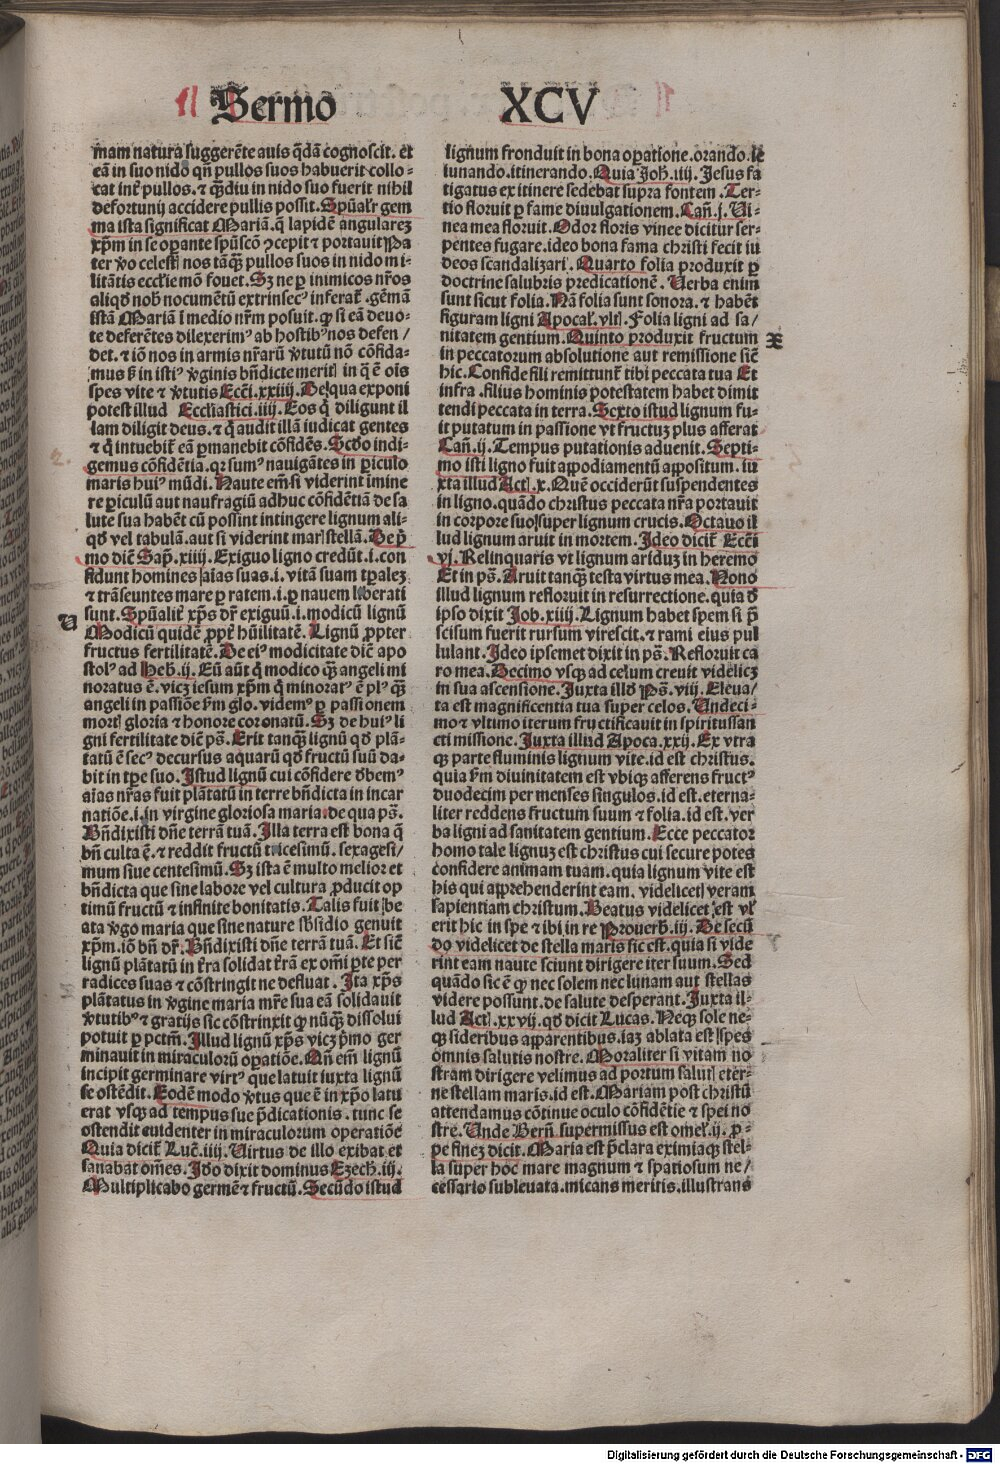 Sermo XCV
mam natura suggerēte auis q̄dā cognoscit. et
eā in suo nido qn̄ pullos suos habuerit collo-
cat int̄ pullos. ⁊ q̄diu in nido suo fuerit nihil
defortunij accidere pullis possit. Spūal̄r gem
ma ista significat Mariā. q̄ lapidē angulareꝫ
xp̄m in se oꝑante spūscō ꝯcepit ⁊ portauit Pa
ter v̄o celest̄ nos tāqꝫ pullos suos in nido mi-
litātis eccl̄ie mō fouet. Sꝫ ne ꝑ inimicos nr̄os
aliqd̄ nob̄ nocumētū extrinsecꝰ inferat̄. gēmā
istā Mariā ī medio nr̄m posuit. qꝫ si eā deuo-
te deferētes dilexerimꝰ ab hostibꝰ nos defen/
det. ⁊ iō nos in armis nr̄arū v̄tutū nō cōfida-
mus s̄ in istiꝰ v̄ginis bn̄dicte merit̄ in q̄ ē oīs
spes vite ⁊ v̄tutis Ecc̄i. xxiiij. De qua exponi
potest illud Eccl̄iastici. iiij. Eos q̄ diligunt il
lam diligit deus. ⁊ q̄ audit illā iudicat gentes
⁊ q̄ intuebit̄ eā ꝑmanebit cōfidēs. Scdo indi-
gemus cōfidētia. qꝛ sumꝰ nauigātes in ꝑiculo
maris huiꝰ mūdi. Naute em̄ si viderint imine
re ꝑiculū aut naufragiū adhuc cōfidētiā de sa
lute sua habēt cū possint intingere lignum ali-
qd̄ vel tabulā. aut si viderint mar̄ stellā. De p̄
mo diē Sap̄. xiiij. Exiguo ligno credūt. i. con
fidunt homines aīas suas. i. vitā suam tp̄aleꝫ
⁊ trāseuntes mare ꝑ ratem. i. ꝑ nauem liberati
U sunt. Spūalit̄ xp̄s dr̄ exiguū. i. modicū lignū
Modicū quidē ꝓpt̄ hūilitatē. Lignū ꝓpter
fructus fertilitatē. De eiꝰ modicitate diē apo
stolꝰ ad Heb̄. ij. Eū aūt q̄ modico qꝫ angeli mi
noratus ē. vicꝫ iesum xp̄m q̄ minoratꝰ ē plꝰ qꝫ
angeli in passiōe s̄m glo. videmꝰ ꝑ passionem
mort̄ gloria ⁊ honore coronatū. Sꝫ de huiꝰ li
gni fertilitate diē ps̄. Erit tanqꝫ lignū qd̄ plā-
tatū ē secꝰ decursus aquarū qd̄ fructū suū da-
bit in tp̄e suo. Istud lignū cui cōfidere d̄bemꝰ
aīas nr̄as fuit plātatū in terre bn̄dicta in incar
natiōe. i. in virgine gloriosa maria. de qua ps̄.
Bn̄dixisti dn̄e terrā tuā. Illa terra est bona q̄
bn̄ culta ē. ⁊ reddit fructū tricesimū. sexagesi/
mum siue centesimū. Sꝫ ista ē multo melior et
bn̄dicta que sine labore vel cultura ꝓducit op
timū fructū ⁊ infinite bonitatis. Talis fuit be
ata v̄go maria que sine nature sb̄sidio genuit
xp̄m. iō bn̄ dr̄. Bn̄dixisti dn̄e terrā tuā. Et siē
lignū plātatū in t̄ra solidat t̄rā ex om̄i ꝑte per
radices suas ⁊ cōstringit ne defluat. Ita xp̄s
plātatus in v̄gine maria mr̄e sua eā solidauit
v̄tutibꝰ ⁊ gratijs sic cōstrinxit qꝫ nūqꝫ dissolui
potuit ꝑ pctm̄. Illud lignū xp̄s vicꝫ p̄mo ger
minauit in miraculorū oꝑatiōe. Qn̄ em̄ lignū
incipit germinare virtꝰ que latuit iuxta lignū
se ostēdit. Eodē modo v̄tus que ē in xp̄o latu
erat vsqꝫ ad tempus sue p̄dicationis. tunc se
ostendit euidenter in miraculorum operatiōe
Quia dicit̄ Luc̄. iiij. Uirtus de illo exibat et
sanabat om̄es. Ido dixit dominus Ezech̄. iij.
Multiplicabo germē ⁊ fructū. Secūdo istud
lignum fronduit in bona oꝑatione. orando. ie
iunando. itinerando. Quia Joh̄. iiij. Jesus fa
tigatus ex itinere sedebat supra fontem. Ter-
tio floruit ꝑ fame diuulgationem. Cañ. j. Ui-
nea mea floruit. Odor floris vinee dicitur ser-
pentes fugare. ideo bona fama christi fecit iu
deos scandalizari. Quarto folia produxit ꝑ
doctrine salubris predicationē. Uerba enim
sunt sicut folia. Nā folia sunt sonora. ⁊ habēt
figuram ligni Apocal̄. vlt̄. Folia ligni ad sa/
nitatem gentium. Quinto produxit fructum X
in peccatorum absolutione aut remissione siē
hic. Confide fili remittunt̄ tibi peccata tua Et
infra. filius hominis potestatem habet dimit
tendi peccata in terra. Sexto istud lignum fu-
it putatum in passione vt fructuꝫ plus afferat
Cañ. ij. Tempus putationis aduenit. Septi-
mo isti ligno fuit appodiamentū appositum. iu
xta illud Act̄. x. Quē occiderūt suspendentes
in ligno. quādo christus peccata nr̄a portauit
in corpore suo super lignum crucis. Octauo il
lud lignum aruit in mortem. Ideo dicit̄ Ecc̄i
vj. Relinquaris vt lignum ariduꝫ in heremo
Et in ps̄. Aruit tanqꝫ testa virtus mea. Nono
illud lignum refloruit in resurrectione. quia d̄
ipso dixit Job. xiiij. Lignum habet spem si p̄
scisum fuerit rursum virescit. ⁊ rami eius pul
lulant. Ideo ipsemet dixit in ps̄. Refloruit ca
ro mea. Decimo vsqꝫ ad celum creuit videlicꝫ
in sua ascensione. Juxta illd̄ Ps̄. viij. Eleua/
ta est magnificentia tua super celos. Undeci-
mo ⁊ vltimo iterum fructificauit in spiritussan
cti missione. Juxta illud Apoca. xxij. Ex vtra
qꝫ parte fluminis lignum vite. id est christus.
quia s̄m diuinitatem est vbiqꝫ afferens fructꝰ
duodecim per menses singulos. id est. eterna-
liter reddens fructum suum ⁊ folia. id est. ver
ba ligni ad sanitatem gentium. Ecce peccator
homo tale lignuꝫ est christus cui secure potes
confidere animam tuam. quia lignum vite est
his qui apprehenderint eam. videlicet veram
sapientiam christum. Beatus videlicet est vl̄
erit hic in spe ⁊ ibi in re Prouerb̄. iij. De secū
do videlicet de stella maris sic est. quia si vide
rint eam naute sciunt dirigere iter suum. Sed
quādo sic ē qꝫ nec solem nec lunam aut stellas
videre possunt. de salute desperant. Juxta il-
lud Act̄. xxvij. qd̄ dicit Lucas. Neqꝫ sole ne-
qꝫ sideribus apparentibus. iaꝫ ablata est spes
omnis salutis nostre. Moraliter si vitam no
stram dirigere velimus ad portum salut̄ eter-
ne stellam maris. id est. Mariam post christū
attendamus cōtinue oculo cōfidētie ⁊ spei no
stre. Unde Bern̄. supermissus est omel̄. ij. ꝓ-
pe fineꝫ dicit. Maria est p̄clara eximiaqꝫ stel-
la super hoc mare magnum ⁊ spatiosum ne/
cessario subleuata. micans meritis. illustrans
Digitalisierung gefördert durch die Deutsche Forschungsgemeinschaft - DFG